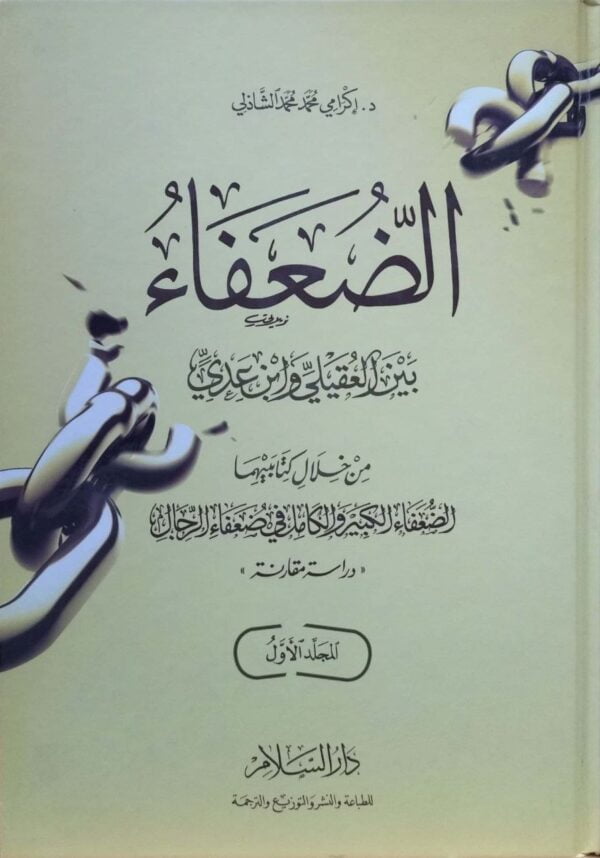 د. إكرامي محمد محمد الشاذلي
الضعفاء
بين العقيلي وابن عدي
من خلال كتابيهما
الضعفاء الكبير والكامل في ضعفاء الرجال
« دراسة مقارنة »
المجلد الأول
دار السلام
للطباعة والنشر والتوزيع والترجمة